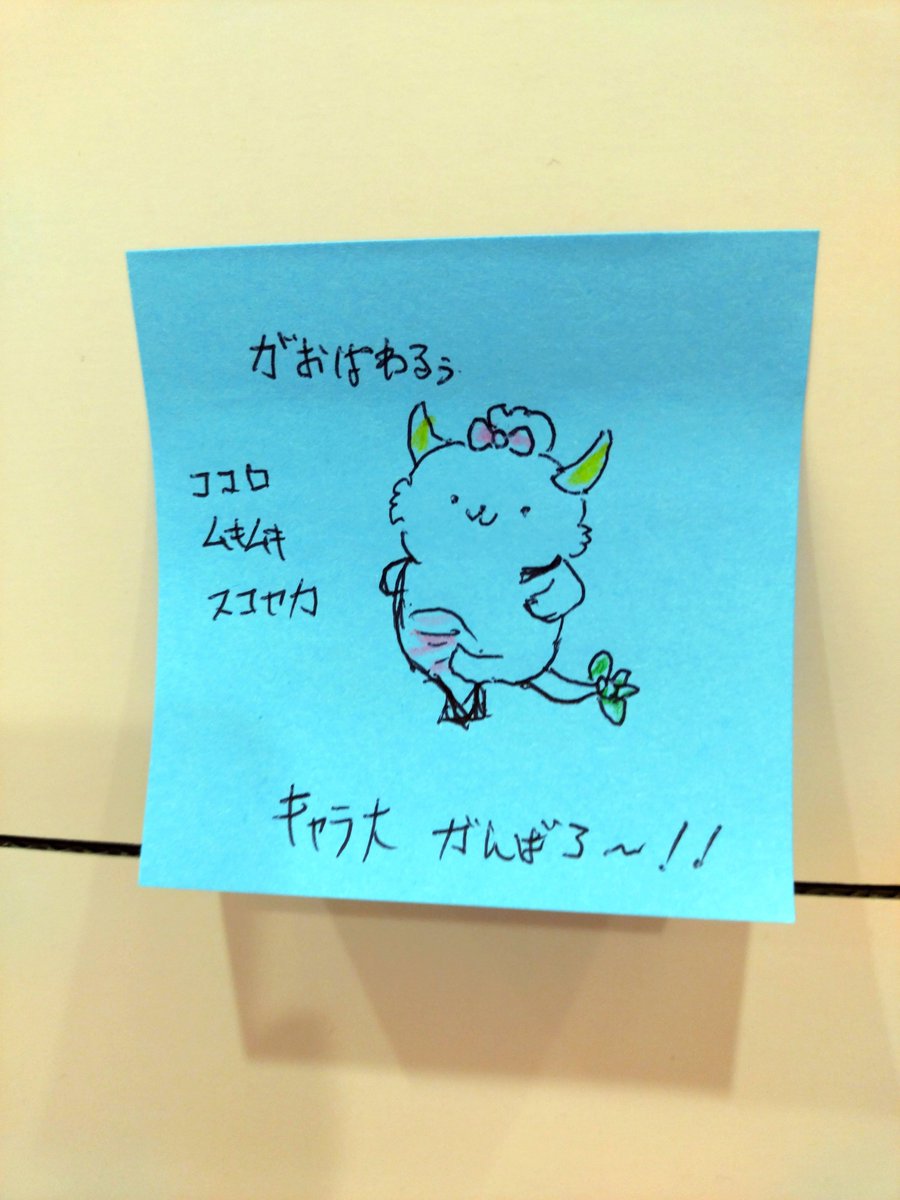 がおぱわるぅ
ココロ
ムキムキ
スコヤカ
キャラ大 がんばろ〜!!